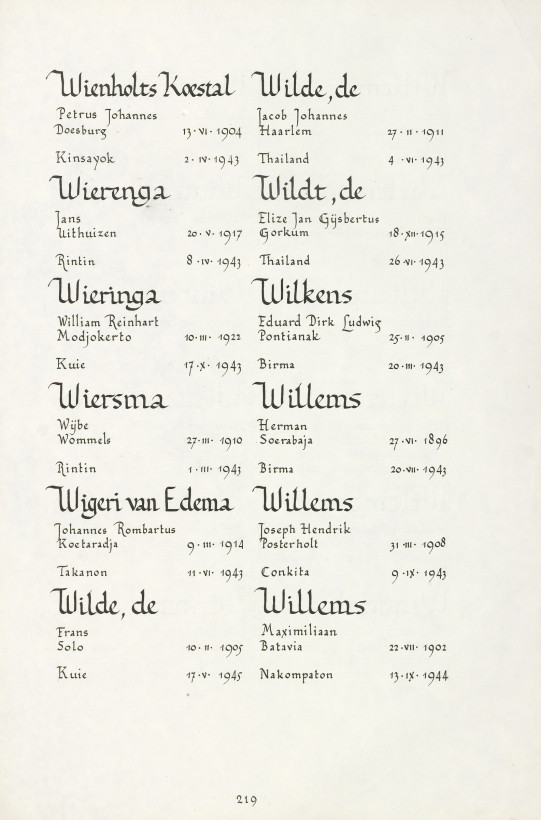 Wienholts Koestal
Petrus Johannes
Doesburg 13·VI·1904
Kinsayok 2·IV·1943
Wierenga
Jans
Uithuizen 20·V·1917
Rintin 8·IV·1943
Wieringa
William Reinhart
Modjokerto 10·III·1922
Kuie 17·X·1943
Wiersma
Wijbe
Wommels 27·III·1910
Rintin 1·III·1943
Wigeri van Edema
Johannes Rombartus
Koetaradja 9·III·1914
Takanon 11·VI·1943
Wilde, de
Frans
Solo 10·II·1905
Kuie 17·V·1945
Wilde, de
Jacob Johannes
Haarlem 27·II·1911
Thailand 4·VI·1943
Wildt, de
Elize Jan Gijsbertus
Gorkum 18·XII·1915
Thailand 26·VI·1943
Wilkens
Eduard Dirk Ludwig
Pontianak 25·II·1905
Birma 20·III·1943
Willems
Herman
Soerabaja 27·VI·1896
Birma 20·VII·1943
Willems
Joseph Hendrik
Posterholt 31·III·1908
Conkita 9·IX·1943
Willems
Maximiliaan
Batavia 22·VII·1902
Nakompaton 13·IX·1944
219